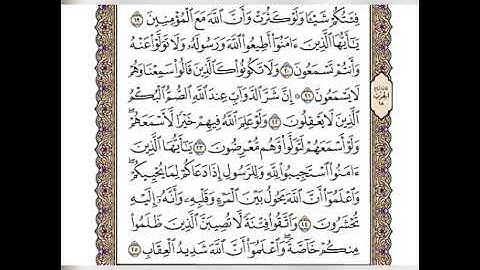 فِئَتُكُمْ شَيْـًٔا وَلَوْ كَثُرَتْ وَأَنَّ ٱللَّهَ مَعَ ٱلْمُؤْمِنِينَ ١٩
يَٰٓأَيُّهَا ٱلَّذِينَ ءَامَنُوٓا۟ أَطِيعُوا۟ ٱللَّهَ وَرَسُولَهُۥ وَلَا تَوَلَّوْا۟ عَنْهُ
وَأَنتُمْ تَسْمَعُونَ ٢٠ وَلَا تَكُونُوا۟ كَٱلَّذِينَ قَالُوا۟ سَمِعْنَا وَهُمْ
لَا يَسْمَعُونَ ٢١ ۞ إِنَّ شَرَّ ٱلدَّوَآبِّ عِندَ ٱللَّهِ ٱلصُّمُّ ٱلْبُكْمُ
ٱلَّذِينَ لَا يَعْقِلُونَ ٢٢ وَلَوْ عَلِمَ ٱللَّهُ فِيهِمْ خَيْرًا لَّأَسْمَعَهُمْ ۖ
وَلَوْ أَسْمَعَهُمْ لَتَوَلَّوا۟ وَّهُم مُّعْرِضُونَ ٢٣ يَٰٓأَيُّهَا ٱلَّذِينَ
ءَامَنُوا۟ ٱسْتَجِيبُوا۟ لِلَّهِ وَلِلرَّسُولِ إِذَا دَعَاكُمْ لِمَا يُحْيِيكُمْ ۖ
وَٱعْلَمُوٓا۟ أَنَّ ٱللَّهَ يَحُولُ بَيْنَ ٱلْمَرْءِ وَقَلْبِهِۦ وَأَنَّهُۥٓ إِلَيْهِ
تُحْشَرُونَ ٢٤ وَٱتَّقُوا۟ فِتْنَةً لَّا تُصِيبَنَّ ٱلَّذِينَ ظَلَمُوا۟
مِنكُمْ خَآصَّةً ۖ وَٱعْلَمُوٓا۟ أَنَّ ٱللَّهَ شَدِيدُ ٱلْعِقَابِ ٢٥
الحزب
١٨